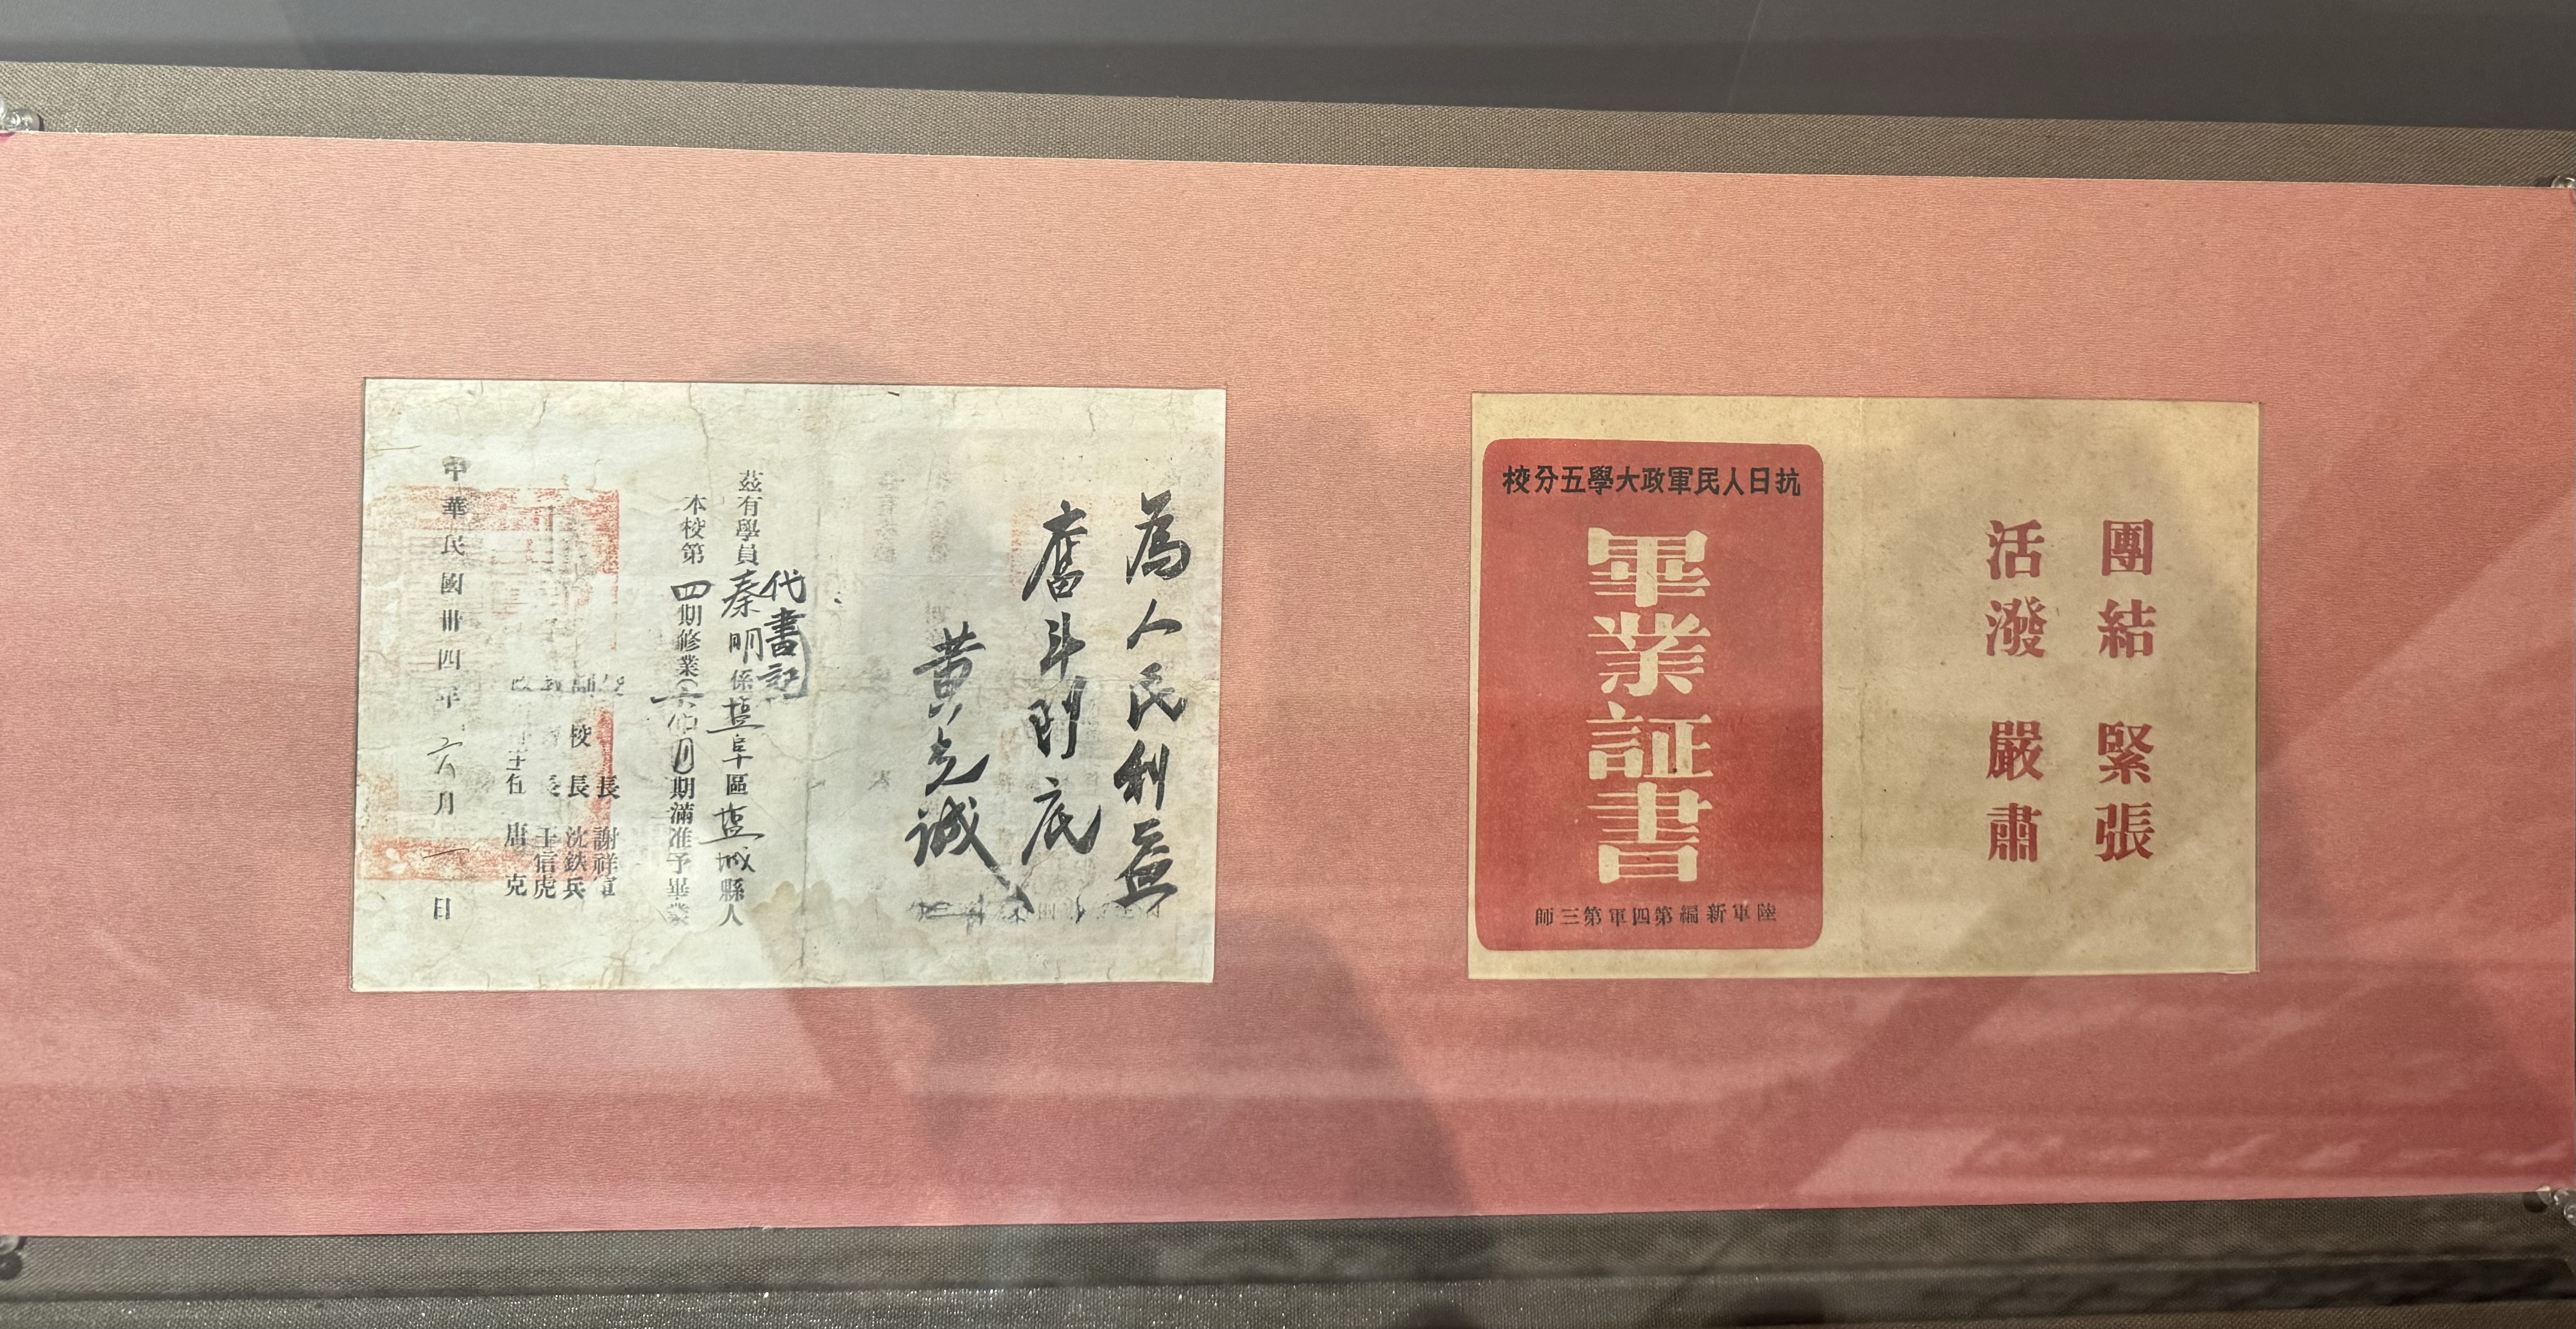 團結 緊張
活潑 嚴肅
抗日人民軍政大學五分校
畢業証書
陸軍新編第四軍第三師
為人民利益
奮斗到底
黄克誠
代書記
茲有學員秦明係塩阜區塩城縣人
本校第四期修業六個月期滿准予畢業
長 謝祥軍
副校長 沈鉄兵
長 王信虎
主任 唐克
中華民國卅四年六月一日